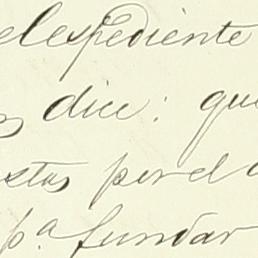 el espediente
dice: que
stas por el
p.ª fundar